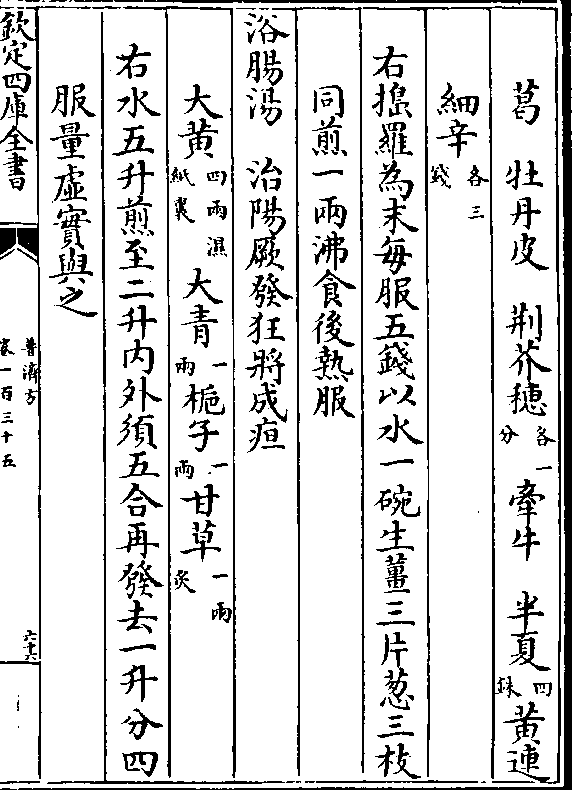 葛　牡丹皮　荆芥穗各一分　牽牛　半夏四銖　黄連
細辛各三錢
右搗羅為末每服五錢以水一碗生薑三片葱三枝
同煎一兩沸食後熟服
浴腸湯　治陽厥發狂將成疸
大黄四兩濕紙裹　大青一兩　梔子一兩　甘草一兩炙
右水五升煎至二升内外須五合再發去一升分四
服量虚實與之
欽定四庫全書
普濟方
卷一百三十五
六十六